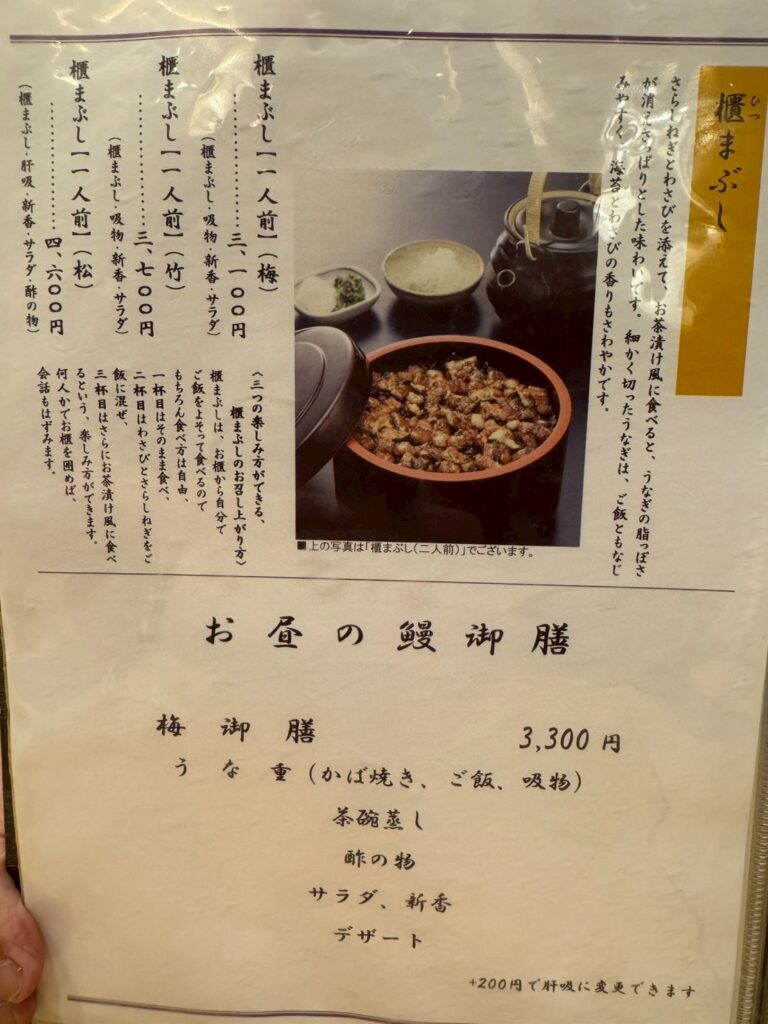 櫃まぶし
ひつ
さらしねぎとわさびを添えて、お茶漬け風に食べると、うなぎの脂っぽさ
が消えさっぱりとした味わいです。細かく切ったうなぎは、ご飯ともなじ
みやすく、海苔とわさびの香りもさわやかです。
■上の写真は「櫃まぶし(二人前)」でございます。
櫃まぶし【一人前】(梅)
…………三、一〇〇円
(櫃まぶし・吸物・新香・サラダ)
櫃まぶし【一人前】(竹)
…………三、七〇〇円
(櫃まぶし・吸物・新香・サラダ)
櫃まぶし【一人前】(松)
…………四、六〇〇円
(櫃まぶし・肝吸・新香・サラダ・酢の物)
〈三つの楽しみ方ができる、
櫃まぶしのお召し上がり方〉
櫃まぶしは、お櫃から自分で
ご飯をよそって食べるので
もちろん食べ方は自由、
一杯目はそのまま食べ、
二杯目はわさびとさらしねぎをご
飯に混ぜ、
三杯目はさらにお茶漬け風に食べ
るという、楽しみ方ができます。
何人かでお櫃を囲めば、
会話もはずみます。
お昼の鰻御膳
梅御膳 3,300円
うな重(かば焼き、ご飯、吸物)
茶碗蒸し
酢の物
サラダ、新香
デザート
+200円で肝吸に変更できます